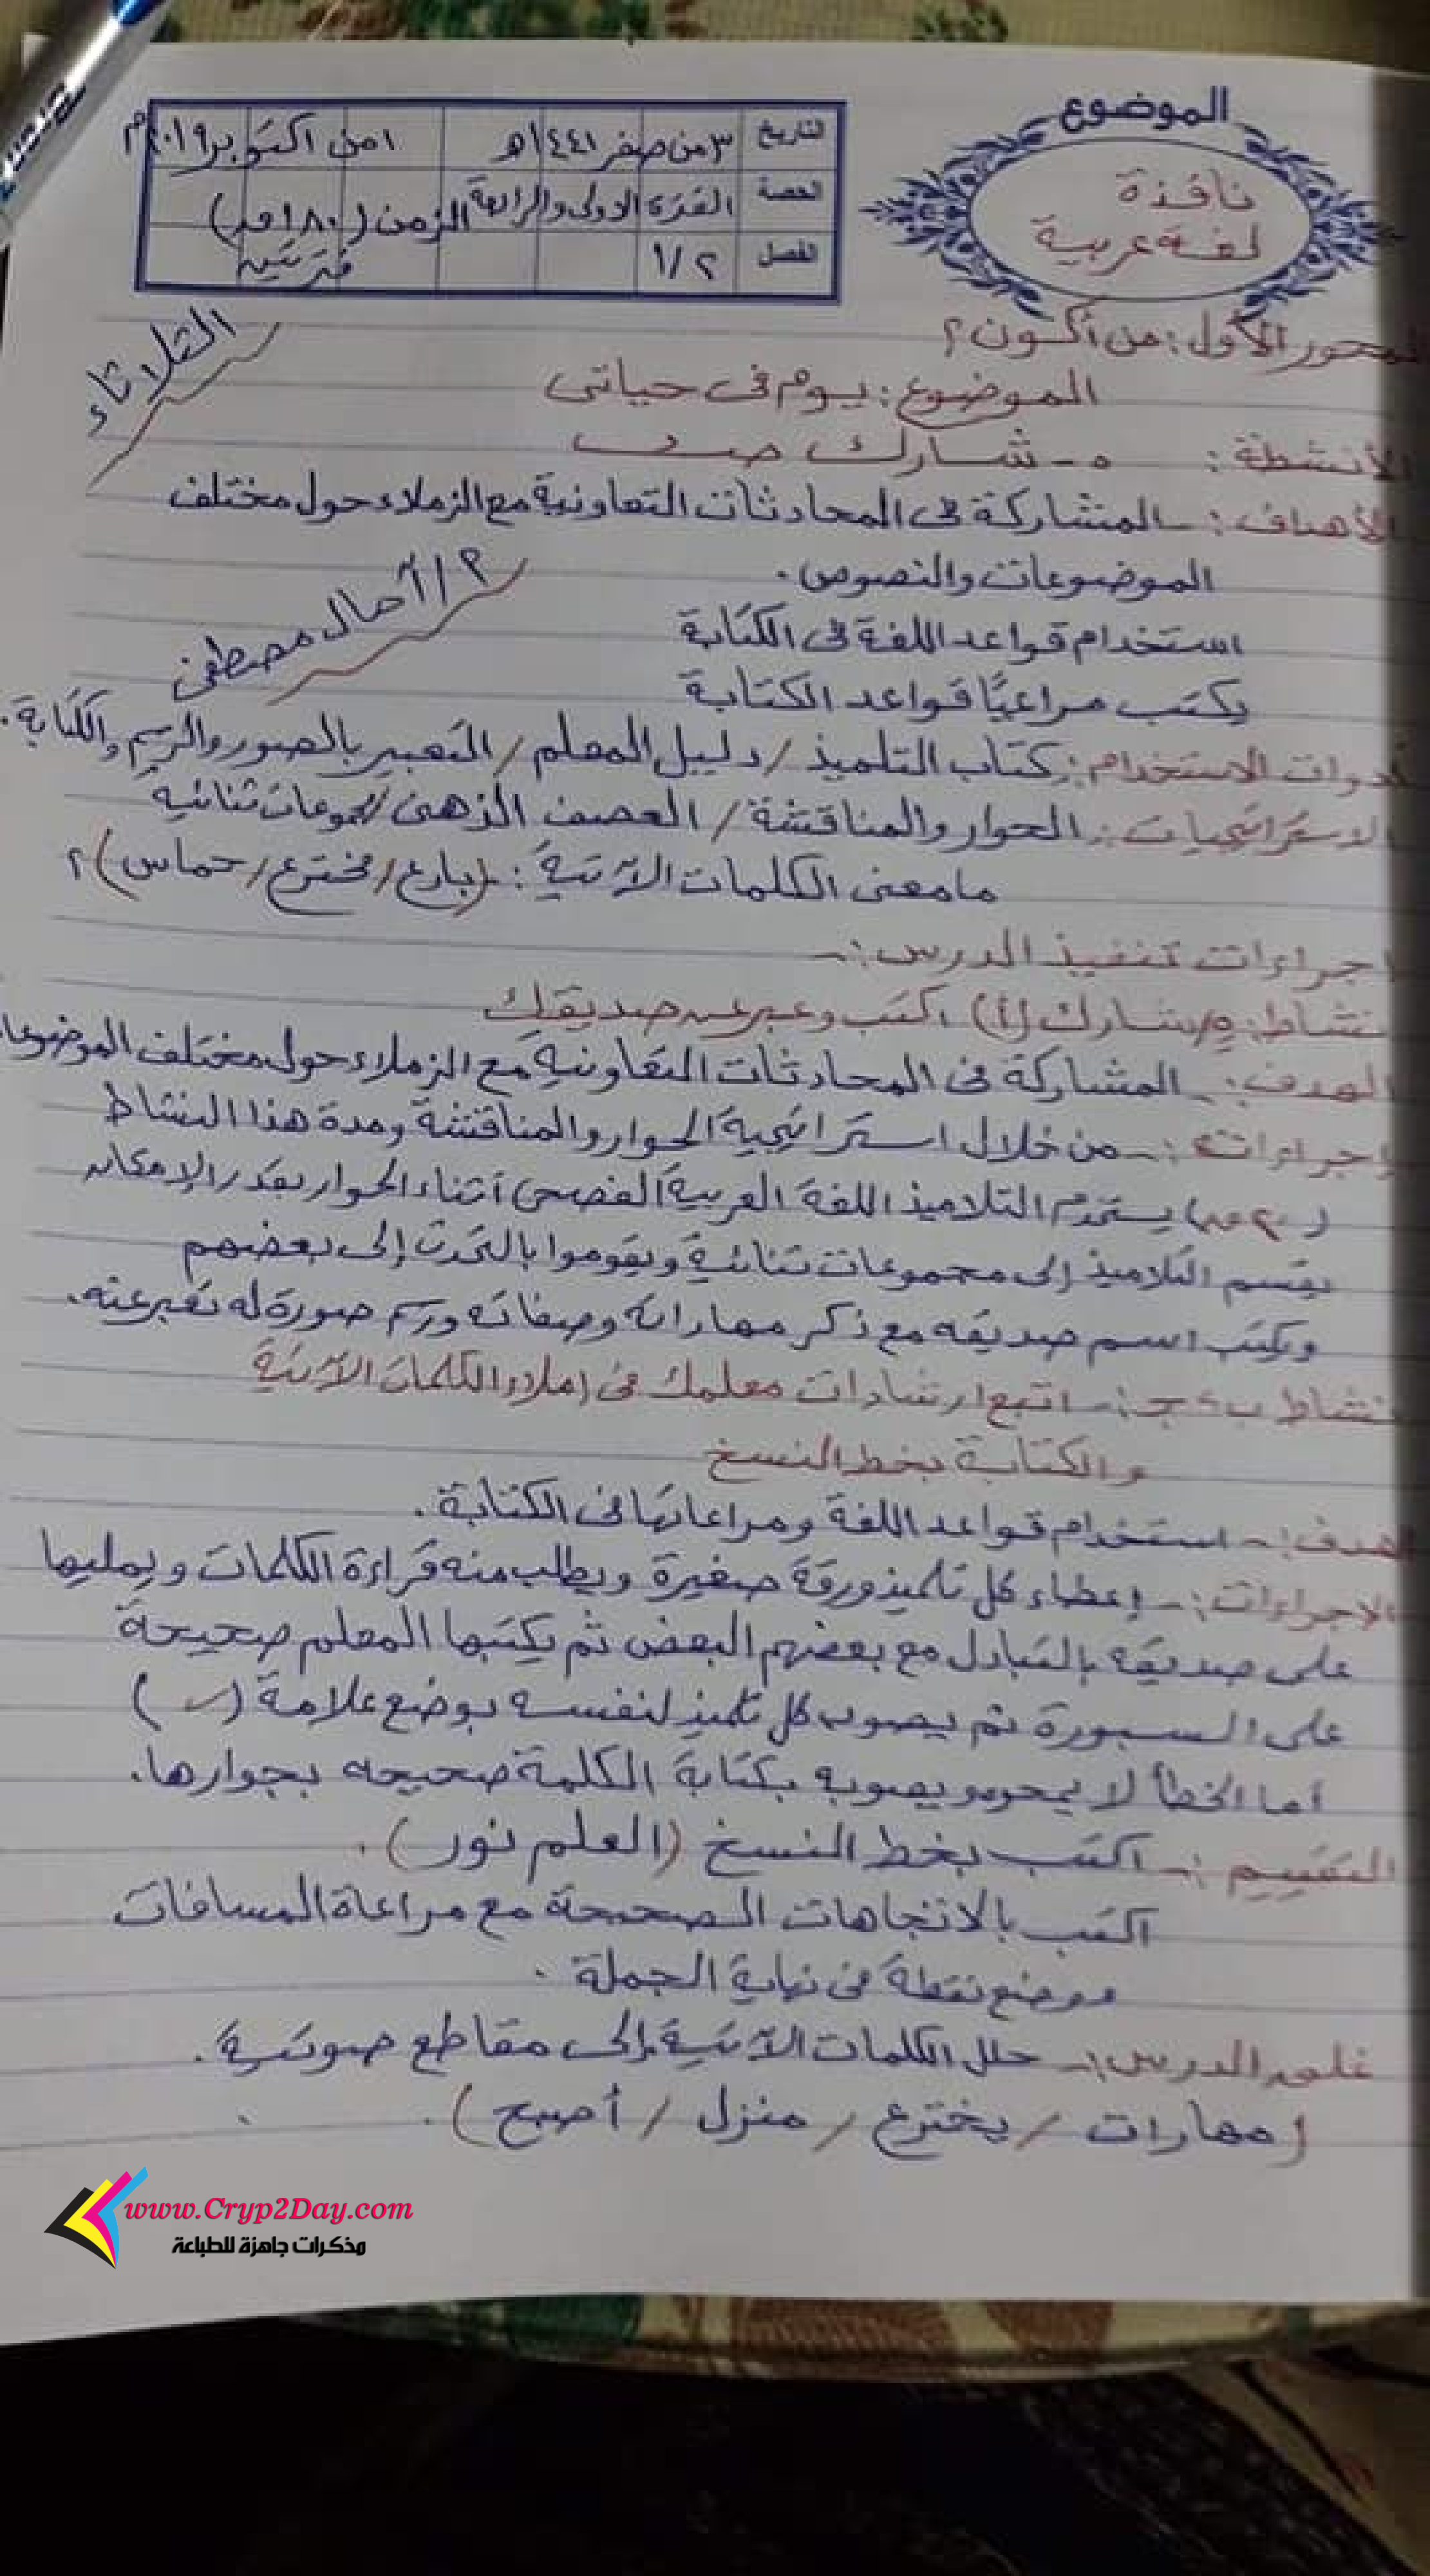 الموضوع
نافذة
لغة عربية
التاريخ ٣ من صفر ١٤٤١هـ ١ من اكتوبر ٢٠١٩م
الحصة الفترة الاولى والرابعة الزمن (١٨٠ق)
فترتين
الفصل ١/٢
الثلاثاء
المحور الأول: من أكون؟
الموضوع: يوم فى حياتى
الأنشطة: ٥- شارك ص
الأهداف:- المشاركة فى المحادثات التعاونية مع الزملاء حول مختلف
الموضوعات والنصوص.
أ/ آمال مصطفى
استخدام قواعد اللغة فى الكتابة
يكتب مراعيًا قواعد الكتابة
أدوات الاستخدام: كتاب التلميذ / دليل المعلم / التعبير بالصور والرسم والكتابة.
الاستراتيجيات: الحوار والمناقشة / العصف الذهنى / مجموعات ثنائية
ما معنى الكلمات الآتية: (بارع / مخترع / حماس)؟
اجراءات تنفيذ الدرس:-
نشاط: ٥ شارك (أ) اكتب وعبر عن صديقك
الهدف:- المشاركة فى المحادثات التعاونية مع الزملاء حول مختلف الموضوعا
إجراءات:- من خلال استراتيجية الحوار والمناقشة ومدة هذا النشاط
(٢٠ ق) يستخدم التلاميذ اللغة العربية الفصحى أثناء الحوار بقدر الإمكان
يقسم التلاميذ إلى مجموعات ثنائية ويقوموا بالتحدث إلى بعضهم
ويكتب اسم صديقه مع ذكر مهاراته وصفاته ورسم صورة له تعبر عنه.
نشاط ب، ج:- اتبع ارشادات معلمك فى إملاء الكلمات الآتية
والكتابة بخط النسخ
الهدف:- استخدام قواعد اللغة ومراعاتها فى الكتابة.
الاجراءات:- إعطاء كل تلميذ ورقة صغيرة ويطلب منه قراءة الكلمات ويمليها
على صديقه بالتبادل مع بعضهم البعض ثم يكتبها المعلم صحيحة
على السبورة ثم يصوب كل تلميذ لنفسه بوضع علامة (✓)
أما الخطأ لا يمحو ويصوبه بكتابة الكلمة صحيحه بجوارها.
التقييم:- اكتب بخط النسخ (العلم نور).
اكتب بالاتجاهات الصحيحة مع مراعاة المسافات
ووضع نقطة فى نهاية الجملة.
غلق الدرس:- حلل الكلمات الآتية إلى مقاطع صوتية.
(مهارات / يخترع / منزل / أصبح).
www.Cryp2Day.com
مذكرات جاهزة للطباعة